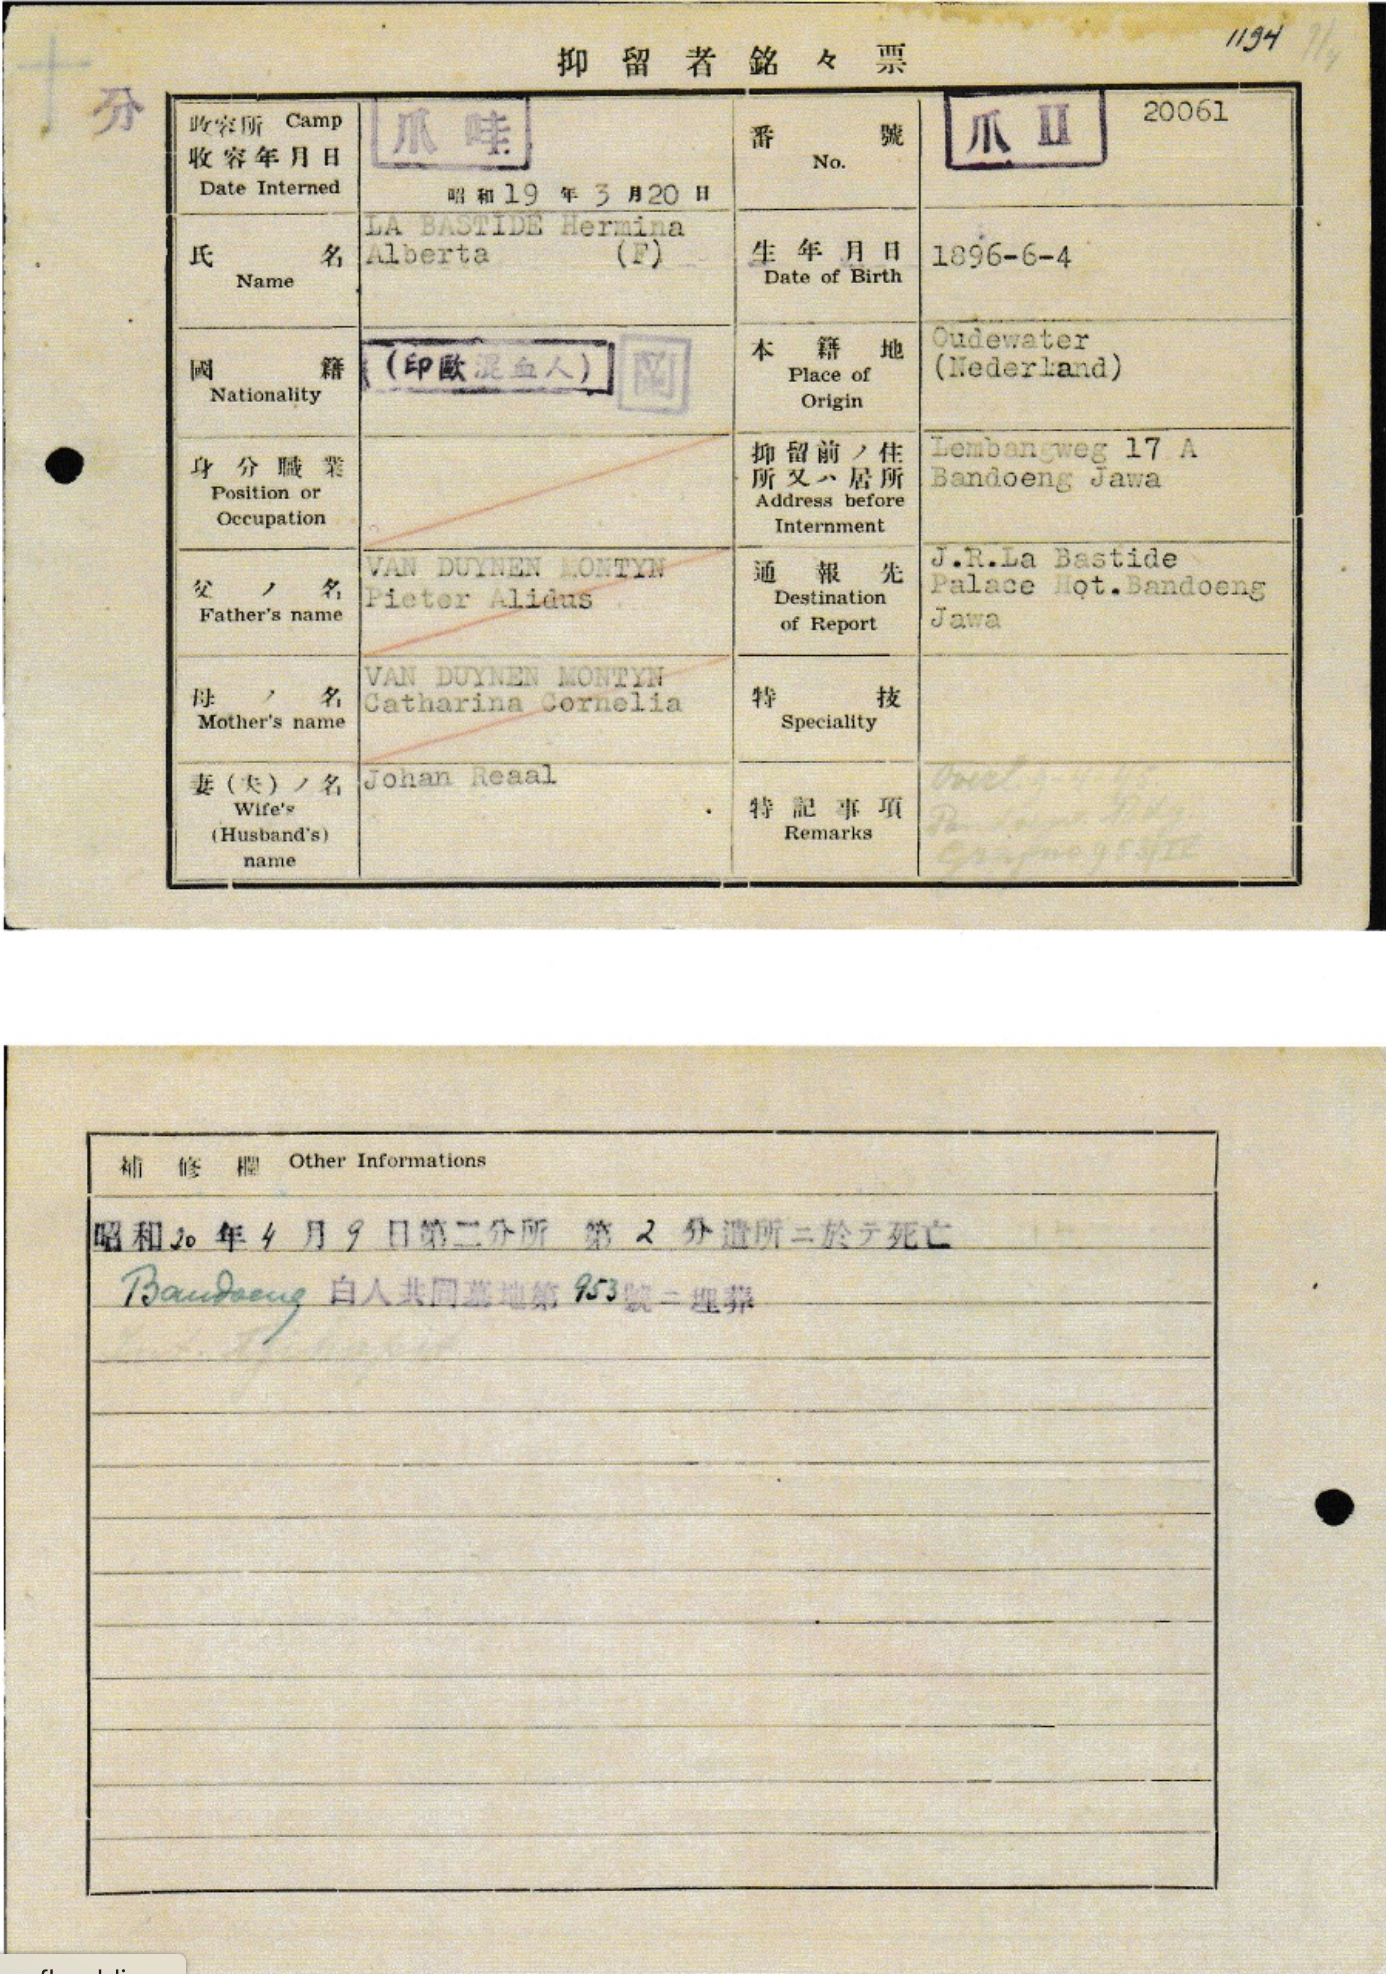 1194
抑留者銘々票
分
收容所 Camp
收容年月日
Date Interned
爪哇
昭和19年3月20日
番號
No.
爪 II
20061
氏名
Name
LA BASTIDE Hermina
Alberta (F)
生年月日
Date of Birth
1896-6-4
國籍
Nationality
(印歐混血人)
本籍地
Place of
Origin
Oudewater
(Nederland)
身分職業
Position or
Occupation
抑留前ノ住
所又ハ居所
Address before
Internment
Lembangweg 17 A
Bandoeng Jawa
父ノ名
Father's name
VAN DUYNEN MONTYN
Pieter Alidus
通報先
Destination
of Report
J.R.La Bastide
Palace Hot.Bandoeng
Jawa
母ノ名
Mother's name
VAN DUYNEN MONTYN
Catharina Cornelia
特技
Speciality
妻(夫)ノ名
Wife's
(Husband's)
name
Johan Reaal
特記事項
Remarks
補修欄 Other Informations
昭和20年4月9日第二分所 第2分遣所ニ於テ死亡
Bandoeng 白人共同墓地第953號ニ埋葬